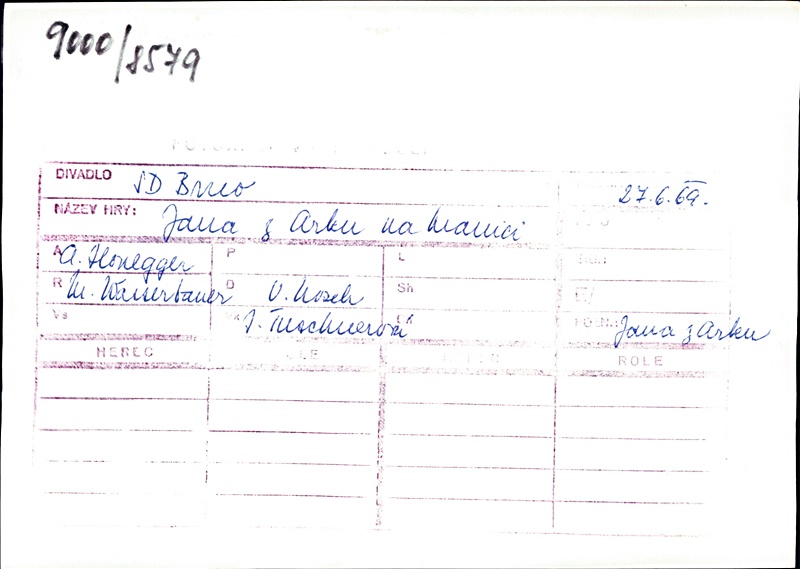 9000/8579
DIVADLO SD Brno 27.6.69.
NÁZEV HRY: Jana z Arku na hranici
A A. Honegger P L
R M. Wasserbauer D V. Nosek Sh
Vs J. Jana z Arku
HEREC ROLE